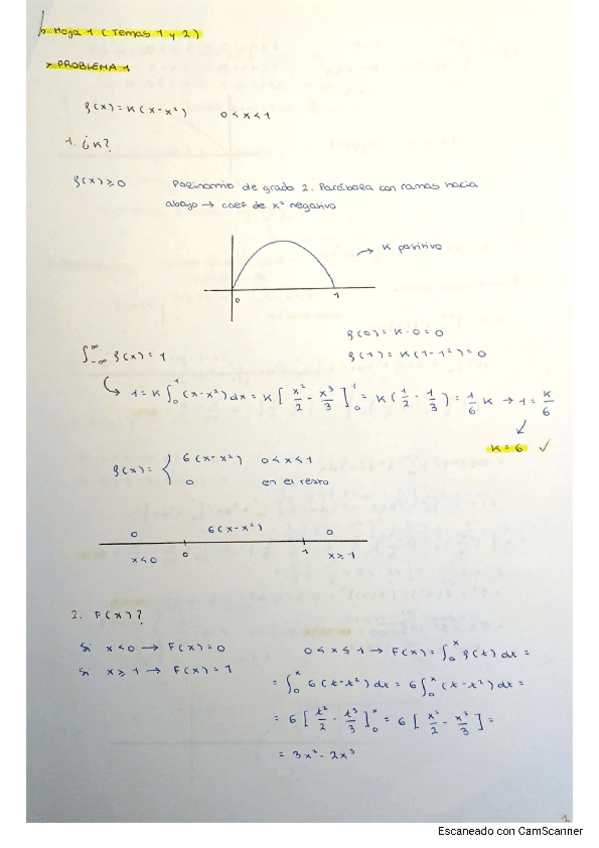 Hoja 1 (Temas 1 y 2)
> PROBLEMA 1
f(x)=K(x-x²) 0<x<1
1. ¿K?
f(x)≥0 Polinomio de grado 2. Parábola con ramas hacia
abajo → coef de x² negativo
→ K positivo
0 1
f(0)=K·0=0
∫_{-∞}^{∞} f(x)=1 f(1)=K(1-1²)=0
↳ 1=K∫₀¹(x-x²)dx=K[x²/2 - x³/3]₀¹=K(1/2 - 1/3)=1/6 K → 1=K/6
K=6 ✓
f(x)= { 6(x-x²) 0<x<1
0 en el resto
0 6(x-x²) 0
x<0 0 1 x≥1
2. F(x)?
Si x<0 → F(x)=0 0<x≤1 → F(x)=∫₀ˣ f(t)dt=
Si x≥1 → F(x)=1 =∫₀ˣ 6(t-t²)dt=6∫₀ˣ(t-t²)dt=
=6[t²/2 - t³/3]₀ˣ=6[x²/2 - x³/3]=
=3x²-2x³
1
Escaneado con CamScanner